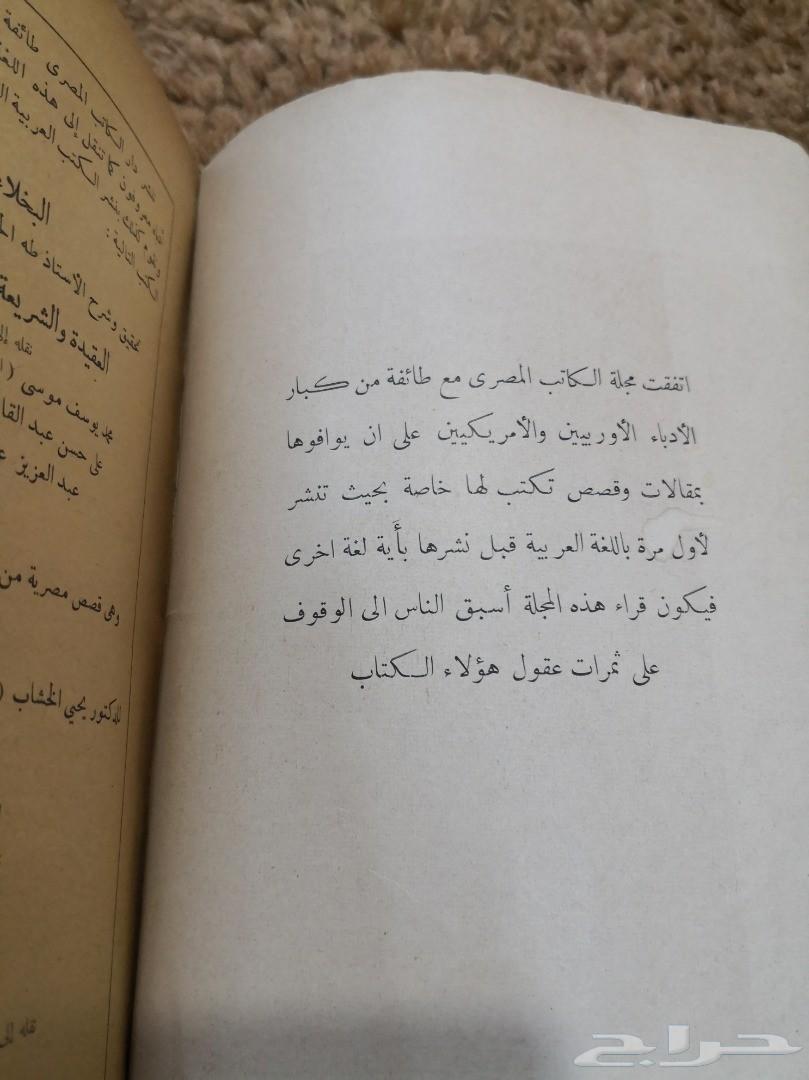 اتفقت مجلة الكاتب المصرى مع طائفة من كبار
الأدباء الأوربيين والأمريكيين على ان يوافوها
بمقالات وقصص تكتب لها خاصة بحيث تنشر
لأول مرة باللغة العربية قبل نشرها بأية لغة اخرى
فيكون قراء هذه المجلة أسبق الناس الى الوقوف
على ثمرات عقول هؤلاء الكتاب
دار الكاتب المصرى طائفة
تنقل إلى هذه
بنشر الكتب العربية
الكتب التالية:
البخلاء
تحقيق وشرح الأستاذ طه
العقيدة والشريعة
نقله
محمد يوسف موسى (
على حسن عبد
عبد العزيز
وهى قصص مصرية من
للدكتور يحيى الخشاب (
نقله الى
حراج